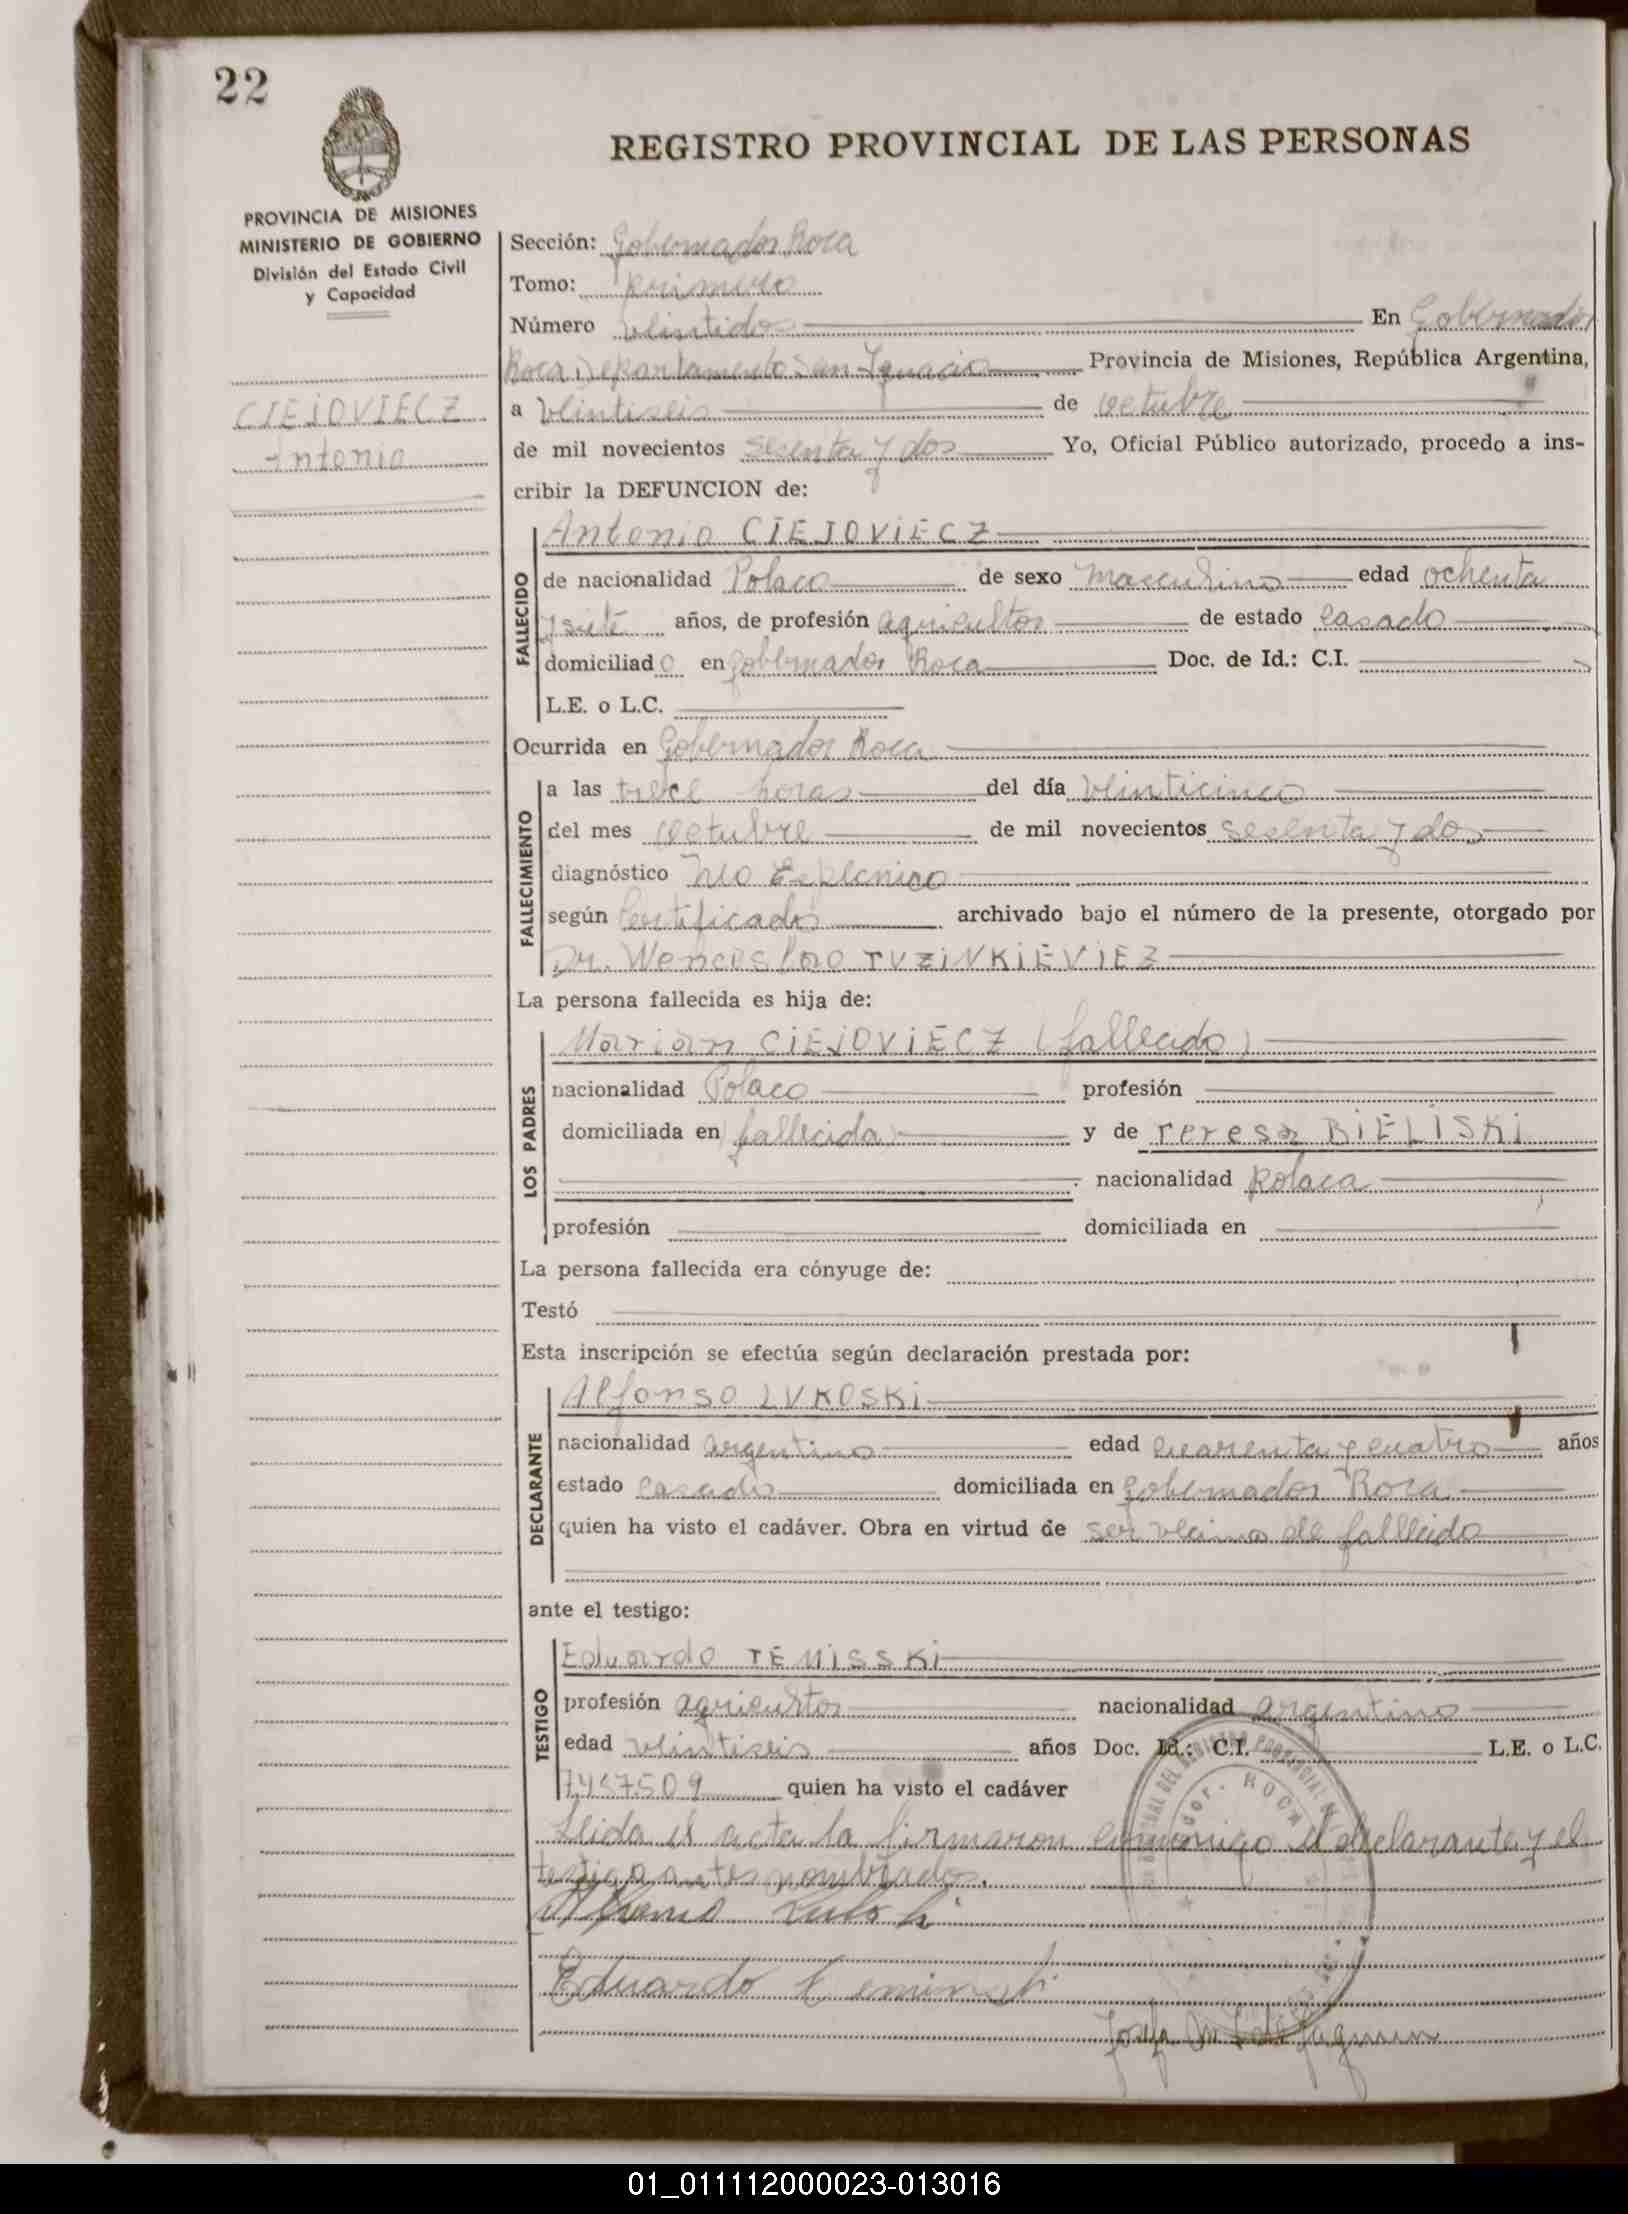 22
REGISTRO PROVINCIAL DE LAS PERSONAS
PROVINCIA DE MISIONES
MINISTERIO DE GOBIERNO
División del Estado Civil
y Capacidad
CIEJOVIECZ
Antonio
Sección: Gobernador Roca
Tomo: primero
Número veintidos En Gobernador
Roca Departamento San Ignacio Provincia de Misiones, República Argentina,
a veintiseis de octubre
de mil novecientos sesenta y dos Yo, Oficial Público autorizado, procedo a ins-
cribir la DEFUNCION de:
FALLECIDO
Antonio CIEJOVIECZ
de nacionalidad Polaco de sexo masculino edad ochenta
y siete años, de profesión agricultor de estado casado
domiciliado en Gobernador Roca Doc. de Id.: C.I.
L.E. o L.C.
Ocurrida en Gobernador Roca
FALLECIMIENTO
a las trece horas del día veinticinco
del mes octubre de mil novecientos sesenta y dos
diagnóstico Neo Esplenico
según Certificado archivado bajo el número de la presente, otorgado por
Dr. Wenceslao TUZINKIEVIEZ
La persona fallecida es hija de:
LOS PADRES
Marian CIEJOVIECZ (fallecido)
nacionalidad Polaco profesión
domiciliada en fallecida y de Teresa BIELISKI
nacionalidad Polaca
profesión domiciliada en
La persona fallecida era cónyuge de:
Testó
Esta inscripción se efectúa según declaración prestada por:
DECLARANTE
Alfonso LUKOSKI
nacionalidad argentino edad cuarenta y cuatro años
estado casado domiciliada en Gobernador Roca
quien ha visto el cadáver. Obra en virtud de ser vecino del fallecido
ante el testigo:
TESTIGO
Eduardo TEMISSKI
profesión agricultor nacionalidad argentino
edad veintiseis años Doc. Id.: C.I. L.E. o L.C.
7457509 quien ha visto el cadáver
Leida el acta la firmaron conmigo el declarante y el
testigo antes nombrados.
Eduardo
ROCA
01_011112000023-013016